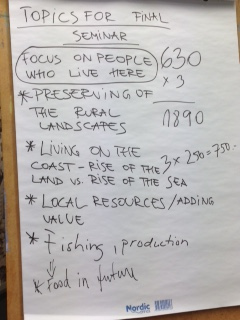 TOPICS FOR FINAL
SEMINAR
FOCUS ON PEOPLE
WHO LIVE HERE
630
x 3
1890
* PRESERVING OF
THE RURAL
LANDSCAPES
* LIVING ON THE
COAST - RISE OF THE
LAND VS. RISE OF THE SEA
3 x 250 = 750 -
* LOCAL RESOURCES / ADDING
VALUE
* Fishing, production
* Food in future
Nordic